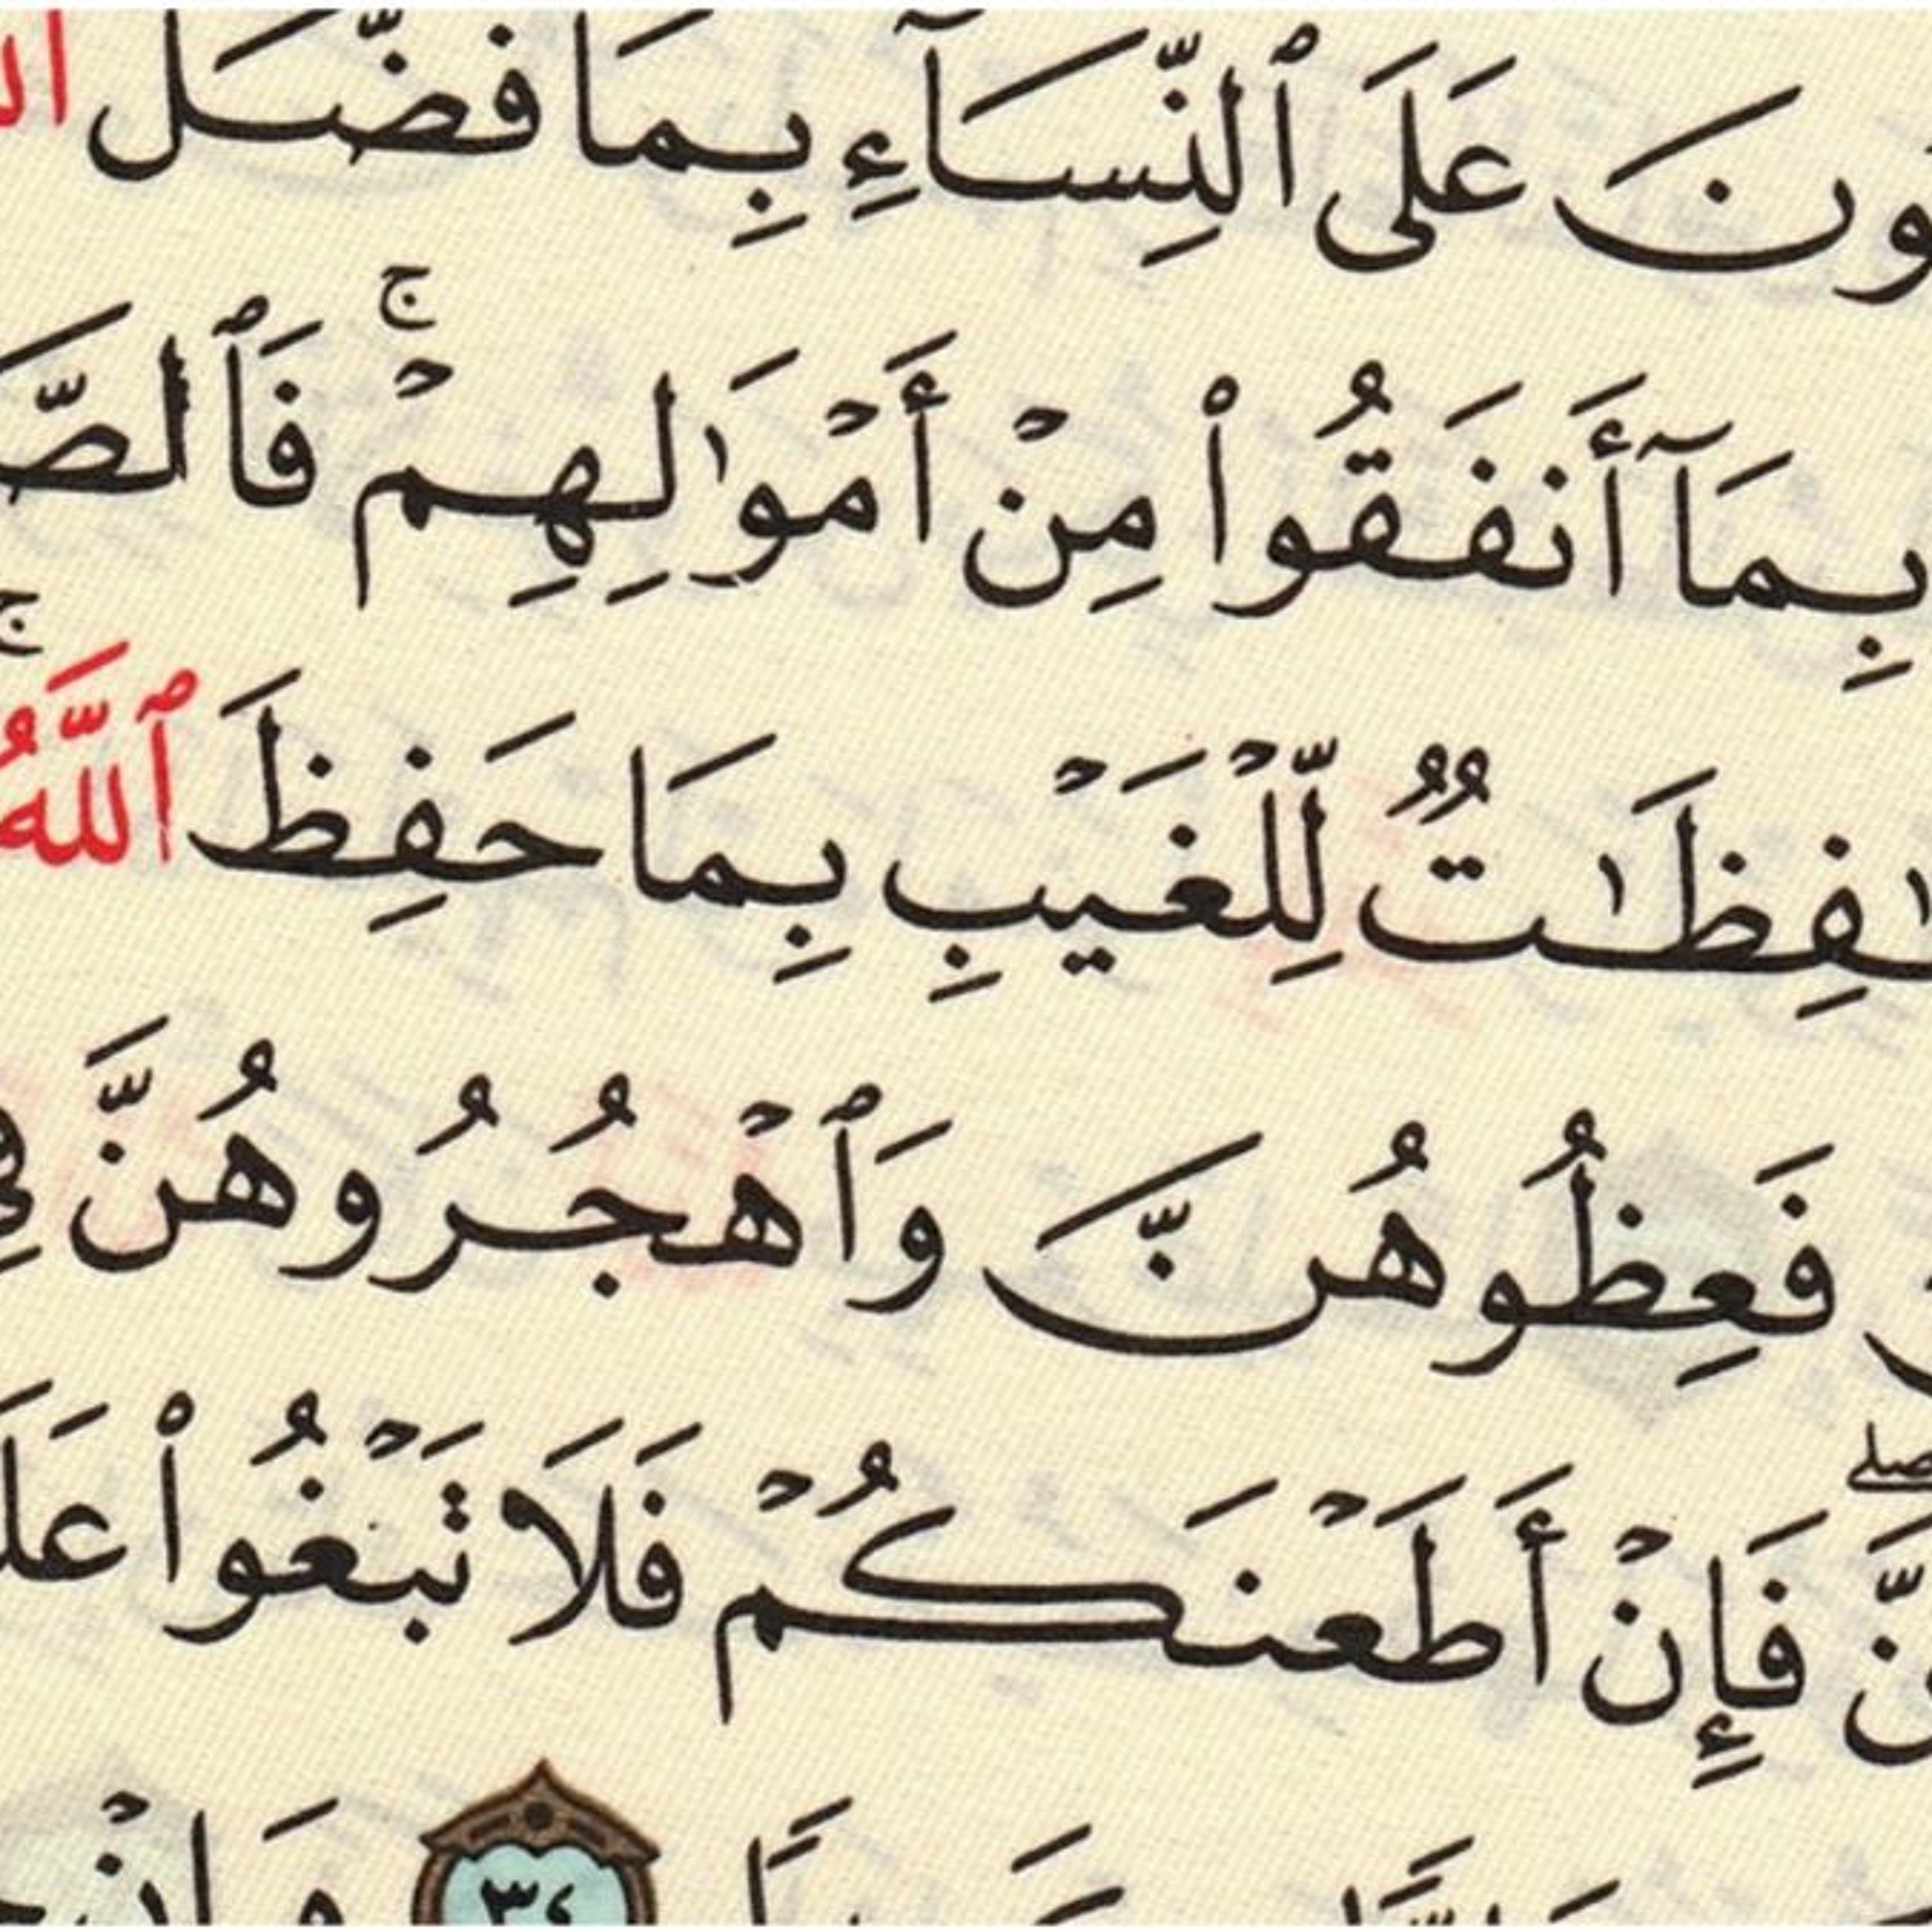 ونَ عَلَى ٱلنِّسَآءِ بِمَا فَضَّلَ
بِمَآ أَنفَقُوا۟ مِنْ أَمْوَٰلِهِمْ ۚ فَٱلصَّ
فِظَـٰتٌ لِّلْغَيْبِ بِمَا حَفِظَ ٱللَّهُ ۚ
فَعِظُوهُنَّ وَٱهْجُرُوهُنَّ فِى
نَّ ۖ فَإِنْ أَطَعْنَكُمْ فَلَا تَبْغُوا۟ عَلَ
٣٤